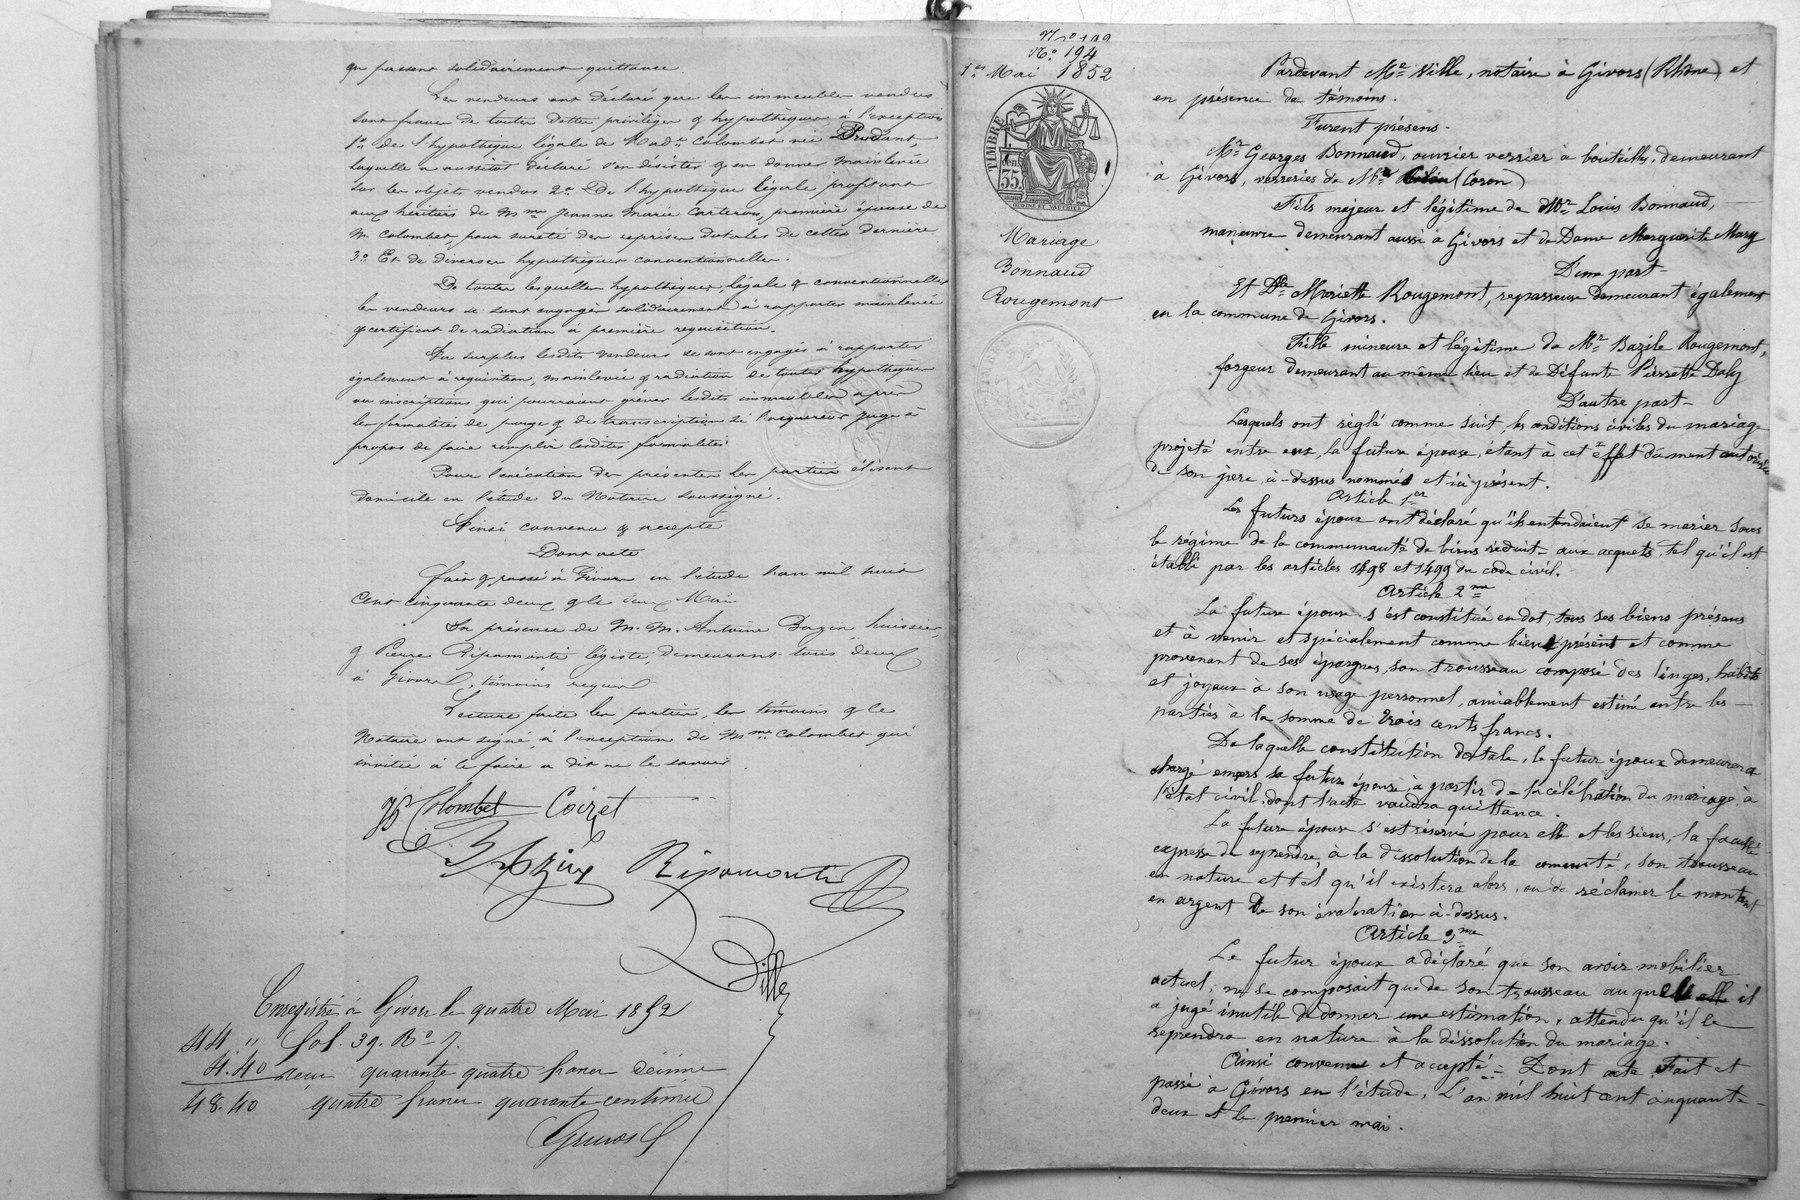 qu passent solidairement quittance.
Les vendeurs ont déclaré que les immeubles vendus
sont francs de toutes dettes privilèges & hypothèques à l'exception
1° de l'hypothèque légale de Mad.e Colombet née Prudant,
laquelle a aussitôt déclaré s'en désister & en donner mainlevée
sur les objets vendus 2° De l'hypothèque légale profitant
aux héritiers de Mme Jeanne Marie Carteron, première épouse de
M. Colombet, pour sureté des reprises dotales de cette dernière
3° Et de diverses hypothèques conventionnelles.
De toutes lesquelles hypothèques, légale & conventionnelles
les vendeurs se sont engagés solidairement à rapporter mainlevée
& certificat de radiation à première réquisition.
Au surplus lesdits vendeurs se sont engagés à rapporter
également à réquisition, mainlevée & radiation de toutes hypothèques
ou inscriptions qui pourraient grever lesdits immeubles après
les formalités de purge & de transcription si l'acquéreur juge à
propos de faire remplir lesdites formalités
Pour l'exécution des présentes les parties élisent
domicile en l'étude du Notaire soussigné.
Ainsi convenu & accepté
Dont acte
fait & passé à Givors en l'étude l'an mil huit
cent cinquante deux & le deux Mai
En présence de M. M. Antoine Bazin, huissier,
& Pierre Ripamonti légiste, demeurans tous deux
à Givors, témoins requis
Lecture faite les parties, les témoins & le
Notaire ont signé, à l'exception de Mme Colombet qui
invitée à le faire a dit ne le savoir
Colombet Coizet
Bazin Ripamonti
Ville
Enregistré à Givors le quatre Mai 1852
44 " fol. 39. R° 7.
4.40 reçu quarante quatre francs décime
48.40 quatre francs quarante centimes
N° 194
1er Mai 1852
TIMBRE
35
Mariage
Bonnaud
Rougemont
Pardevant Me Ville, notaire à Givors (Rhône) et
en présence de témoins.
Furent présens.
Mr Georges Bonnaud, ouvrier verrier à bouteilles, demeurant
à Givors, verreries de Mr (Coron)
Fils majeur et légitime de Mr Louis Bonnaud,
manœuvre demeurant aussi à Givors et de Dame Marguerite Mary
D'une part—
Et Dlle Mariette Rougemont, repasseuse demeurant également
en la commune de Givors.
Fille mineure et légitime de Mr Bazile Rougemont,
forgeur demeurant au même lieu et de Défunte Pierrette Daly
D'autre part—
Lesquels ont réglé comme suit, les conditions civiles du mariage
projeté entre eux, la future épouse, étant à cet effet dûment autorisée
de son père, ci-dessus nommé et ici présent.
Article 1er
Les futurs époux ont déclaré qu'ils entendaient se marier sous
le régime de la communauté de biens réduite aux acquets, tel qu'il est
établi par les articles 1498 et 1499 du code civil.
Article 2me
La future épouse s'est constitué en dot, tous ses biens présens
et à venir et spécialement comme bien présent et comme
provenant de ses épargnes, son trousseau composé des linges, habits
et joyaux à son usage personnel, amiablement estimé entre les—
parties à la somme de trois cents francs.
De laquelle constitution dotale, le futur époux demeurera
chargé envers sa future épouse, à partir de la célébration du mariage à
l'état civil, dont l'acte vaudra quittance.
La future épouse s'est réservé pour elle et les siens, la faculté
expresse de reprendre, à la dissolution de la comunité, son trousseau
en nature et tel qu'il existera alors, ou de réclamer le montant
en argent de son évaluation ci-dessus.
Article 3me
Le futur époux a déclaré que son avoir mobilier
actuel, ne se composait que de son trousseau auquel il
a jugé inutile de donner une estimation, attendu qu'il le
reprendra en nature à la dissolution du mariage.
Ainsi convenu et accepté.= Dont acte. Fait et
passé à Givors en l'étude, L'an mil huit cent cinquante-
deux et le premier mai.